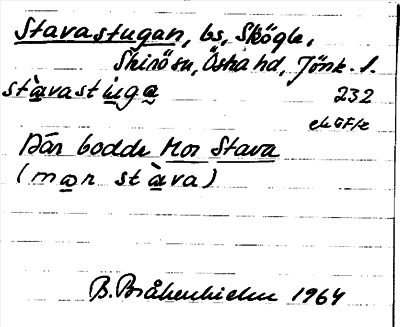 Stavastugan, bs, Skögle,
Skirö sn, Östra hd, Jönk. l.
stàvastùga 232
Där bodde Mor Stava
(mor stàva)
B. Bråkenhielm 1964